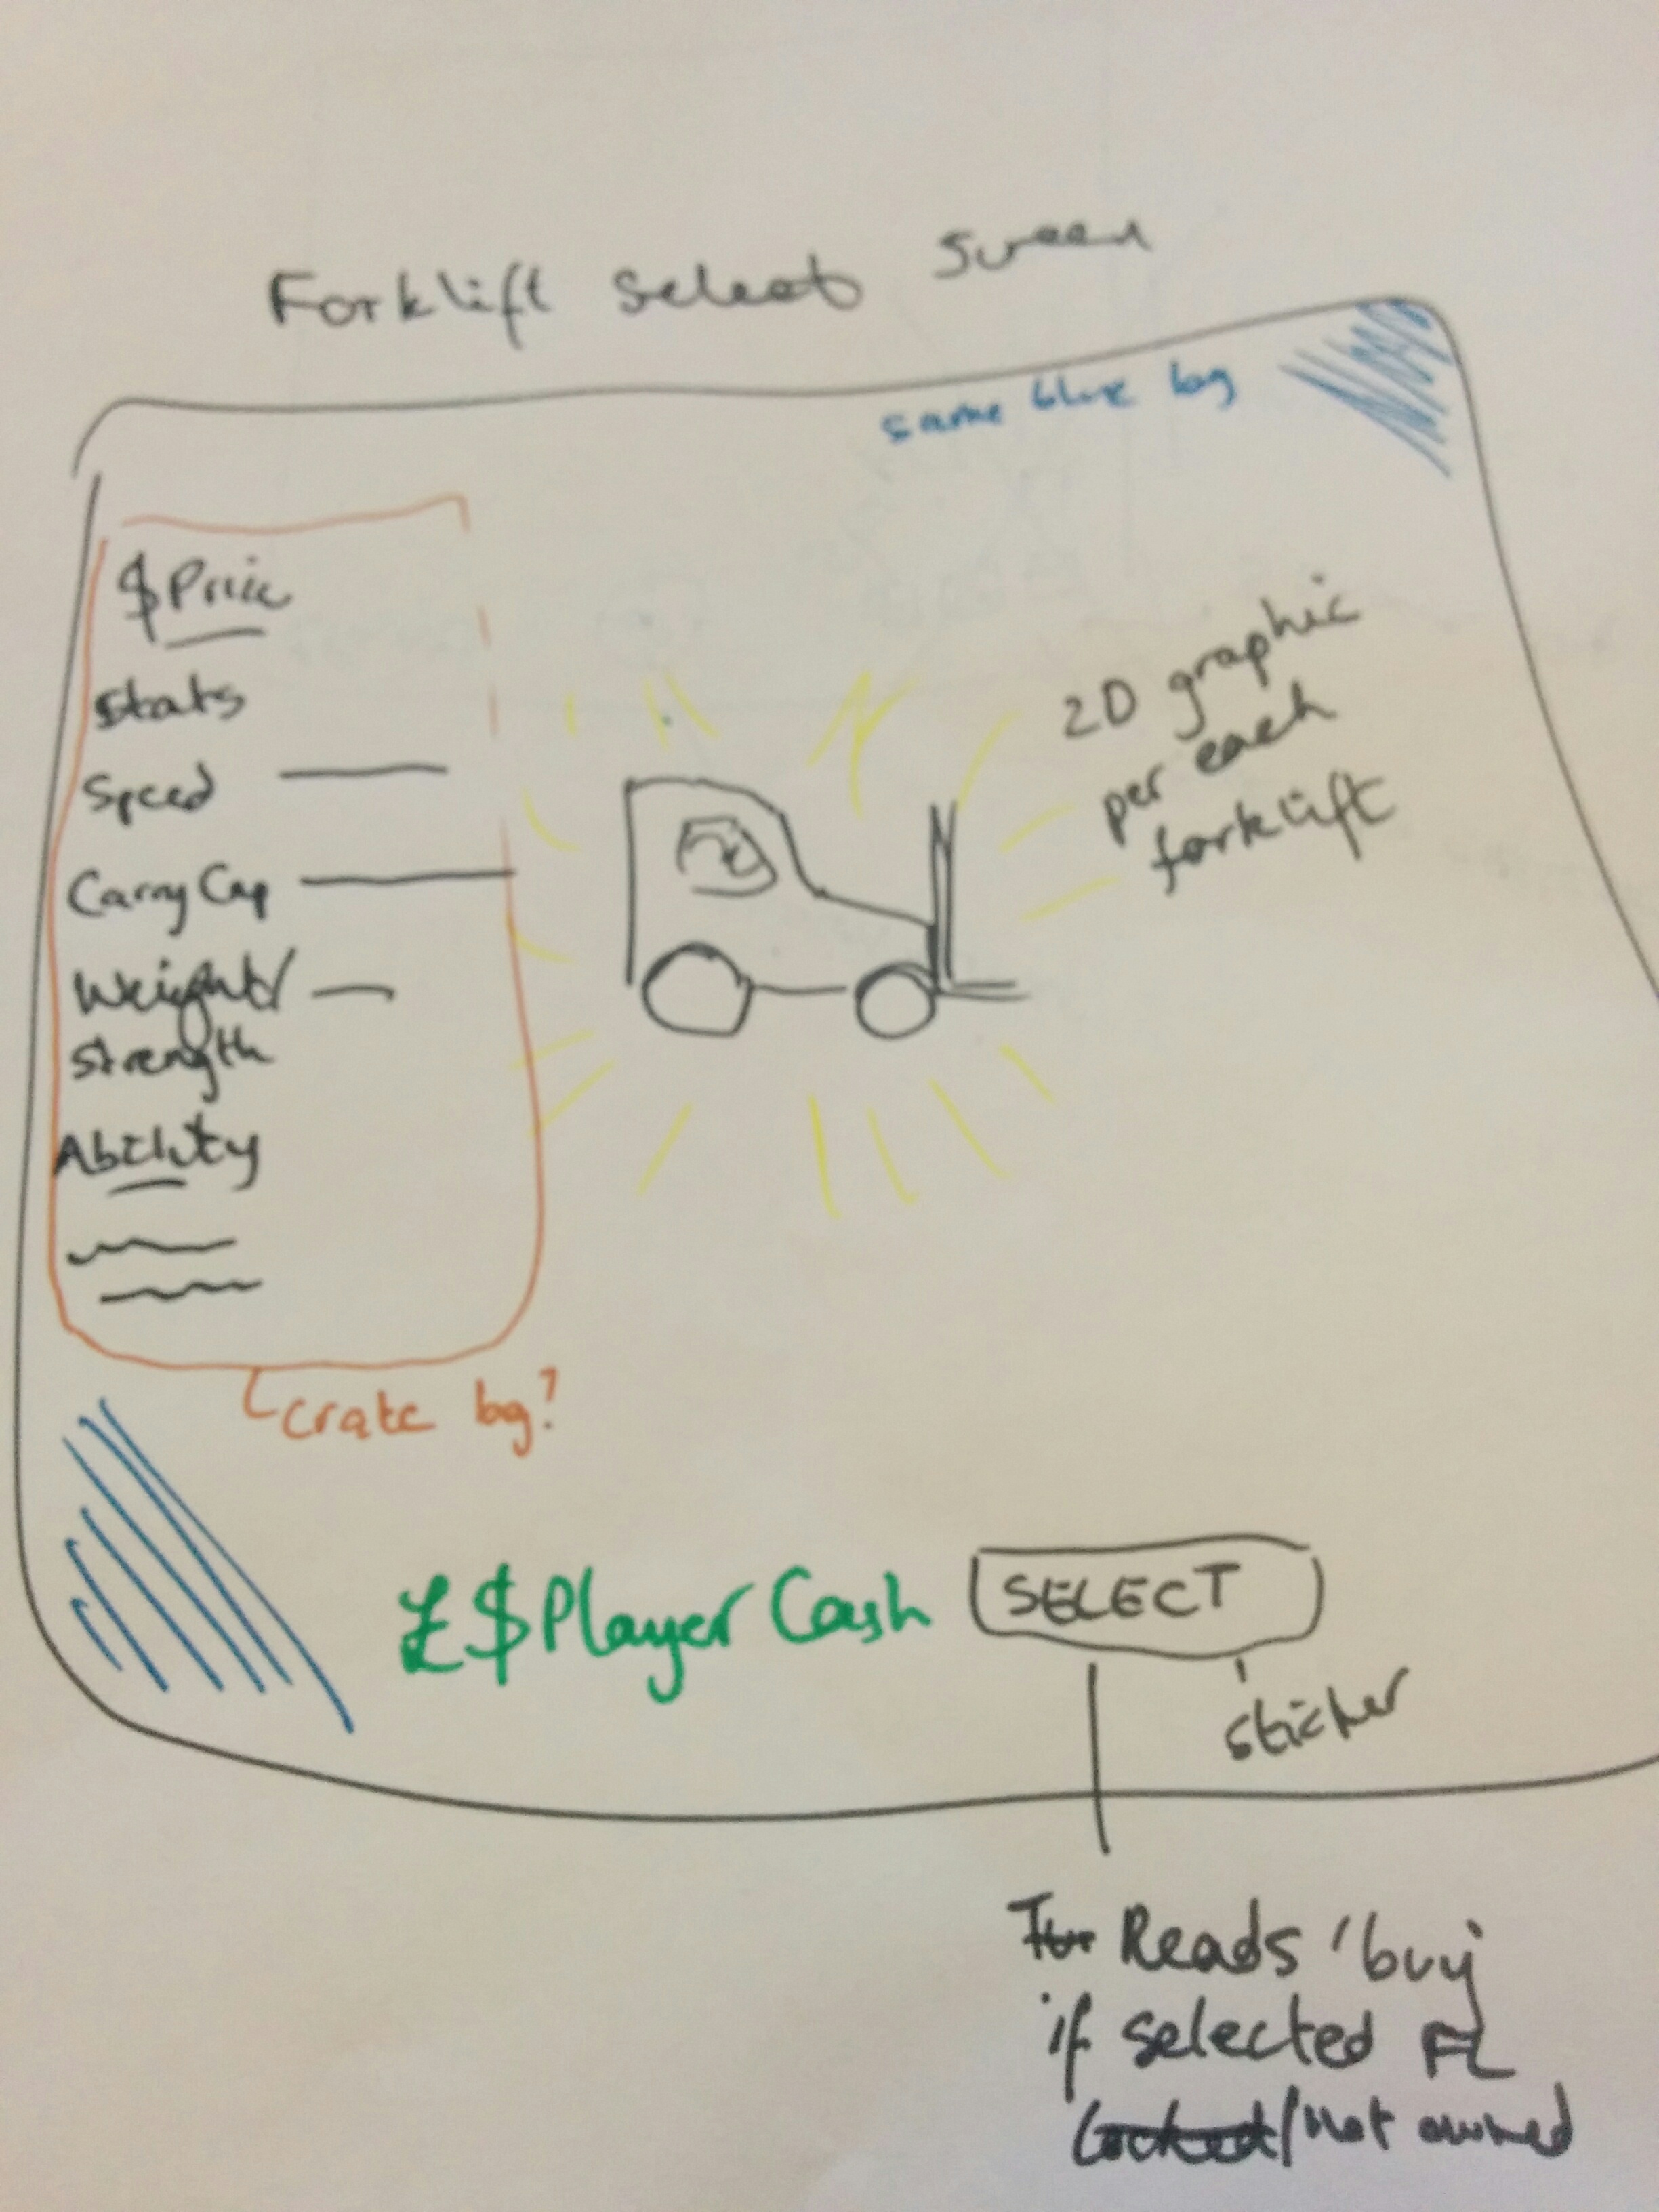 Forklift select screen
same blue bg
$Price
Stats
Speed
Carry Cap
Weight/
strength
Ability
2D graphic
per each
forklift
crate bg?
£$Player Cash
SELECT
sticker
Reads 'buy'
if selected FL
locked/not owned